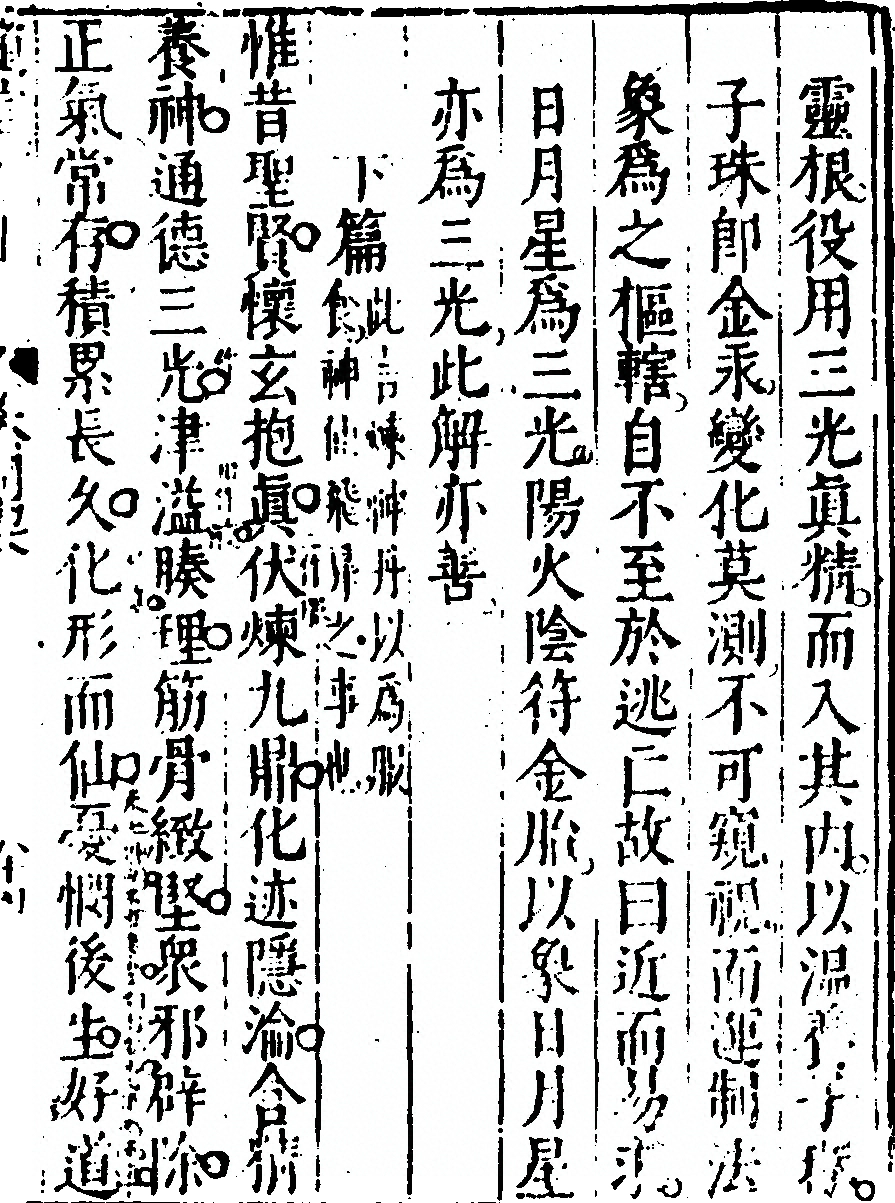 靈根役用三光真精而入其內以溫養子珠
子珠卽金汞變化莫測不可窺視而運制法
象爲之樞轄自不至於逃亡故曰近而易求
日月星爲三光陽火陰符金胎以象日月星
亦爲三光此解亦善
下篇
此言煉神丹以爲服
食神仙飛昇之事也
惟昔聖賢懷玄抱眞伏煉九鼎化迹隱淪含精
養神通德三光津溢腠理筋骨緻堅衆邪辟除
正氣常存積累長久化形而仙憂憫後生好道